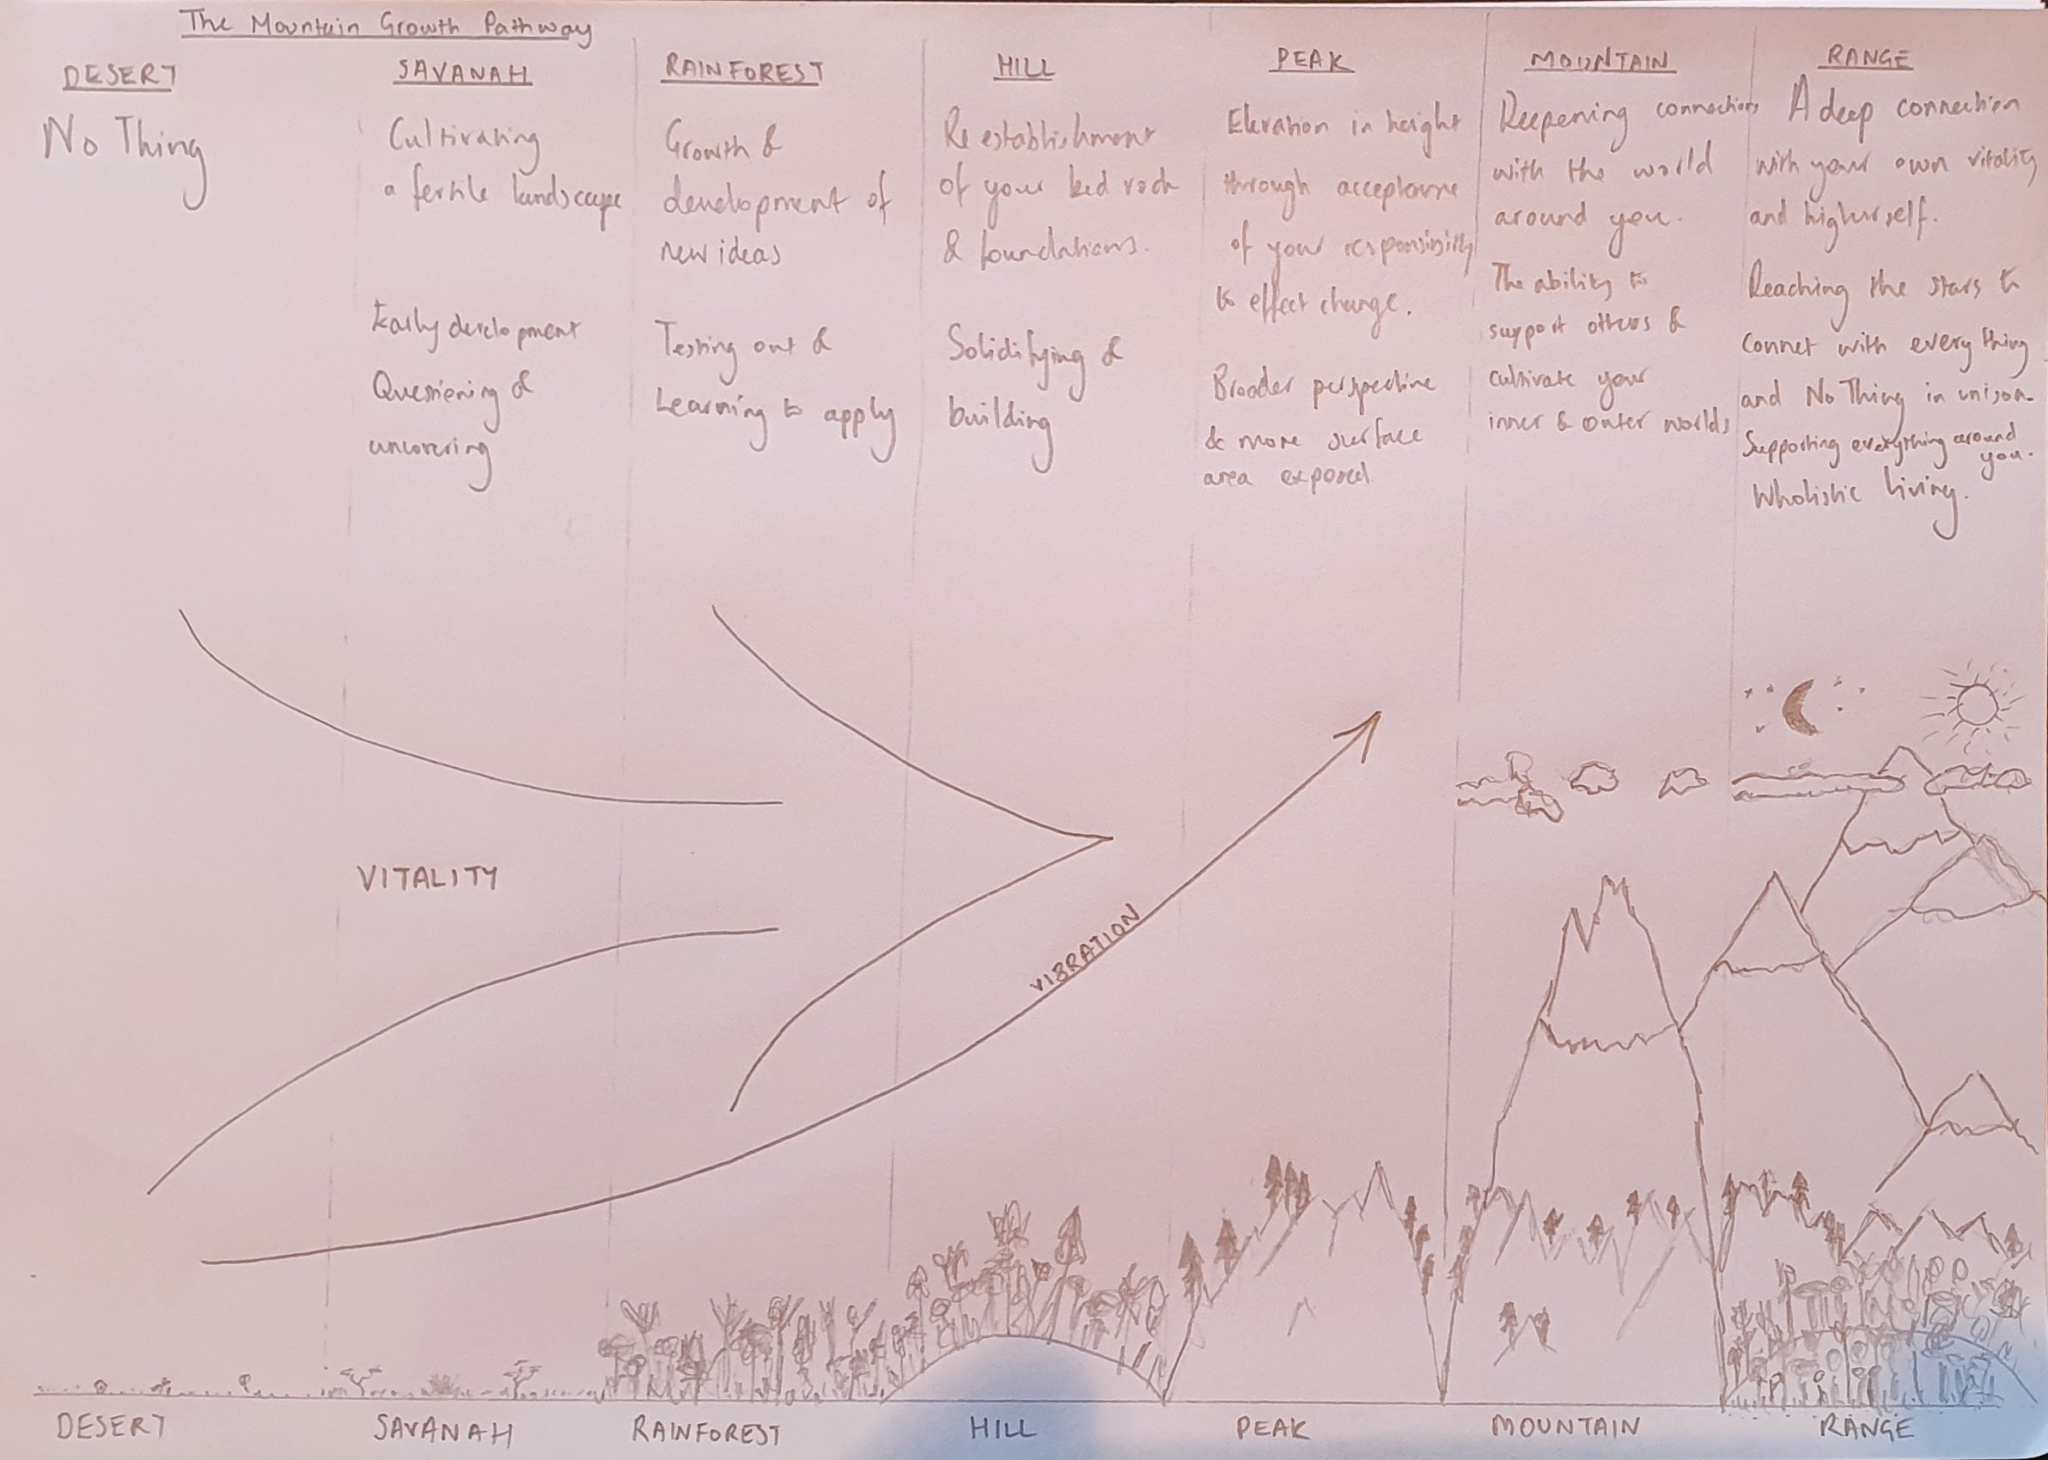 The Mountain Growth Pathway
DESERT
No Thing
SAVANAH
Cultivating
a fertile landscape
Early development
Questioning &
uncovering
RAINFOREST
Growth &
development of
new ideas
Testing out &
Learning to apply
HILL
Re establishment
of your bed rock
& foundations.
Solidifying &
building
PEAK
Elevation in height
through acceptance
of your responsibility
to effect change.
Broader perspective
& more surface
area exposed
MOUNTAIN
Deepening connections
with the world
around you.
The ability to
support others &
cultivate your
inner & outer worlds
RANGE
A deep connection
with your own vitality
and higher self.
Reaching the stars to
connet with everything
and No Thing in unison.
Supporting everything around
you.
Wholistic living.
VITALITY
VIBRATION
DESERT
SAVANAH
RAINFOREST
HILL
PEAK
MOUNTAIN
RANGE